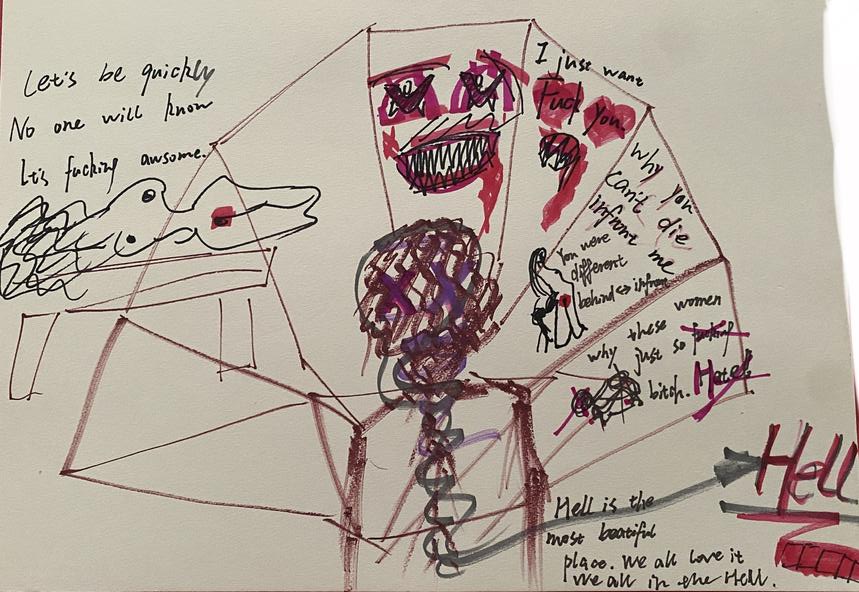 Let's be quickly
No one will know
It's fucking awsome.
I just want
Fuck you.
Why you
can't die
infront me
You were
different
behind <=> infront
why these women
just so fucking
bitch. Hate!
Hell
Hell is the
most beatiful
place. We all love it
We all in the Hell.